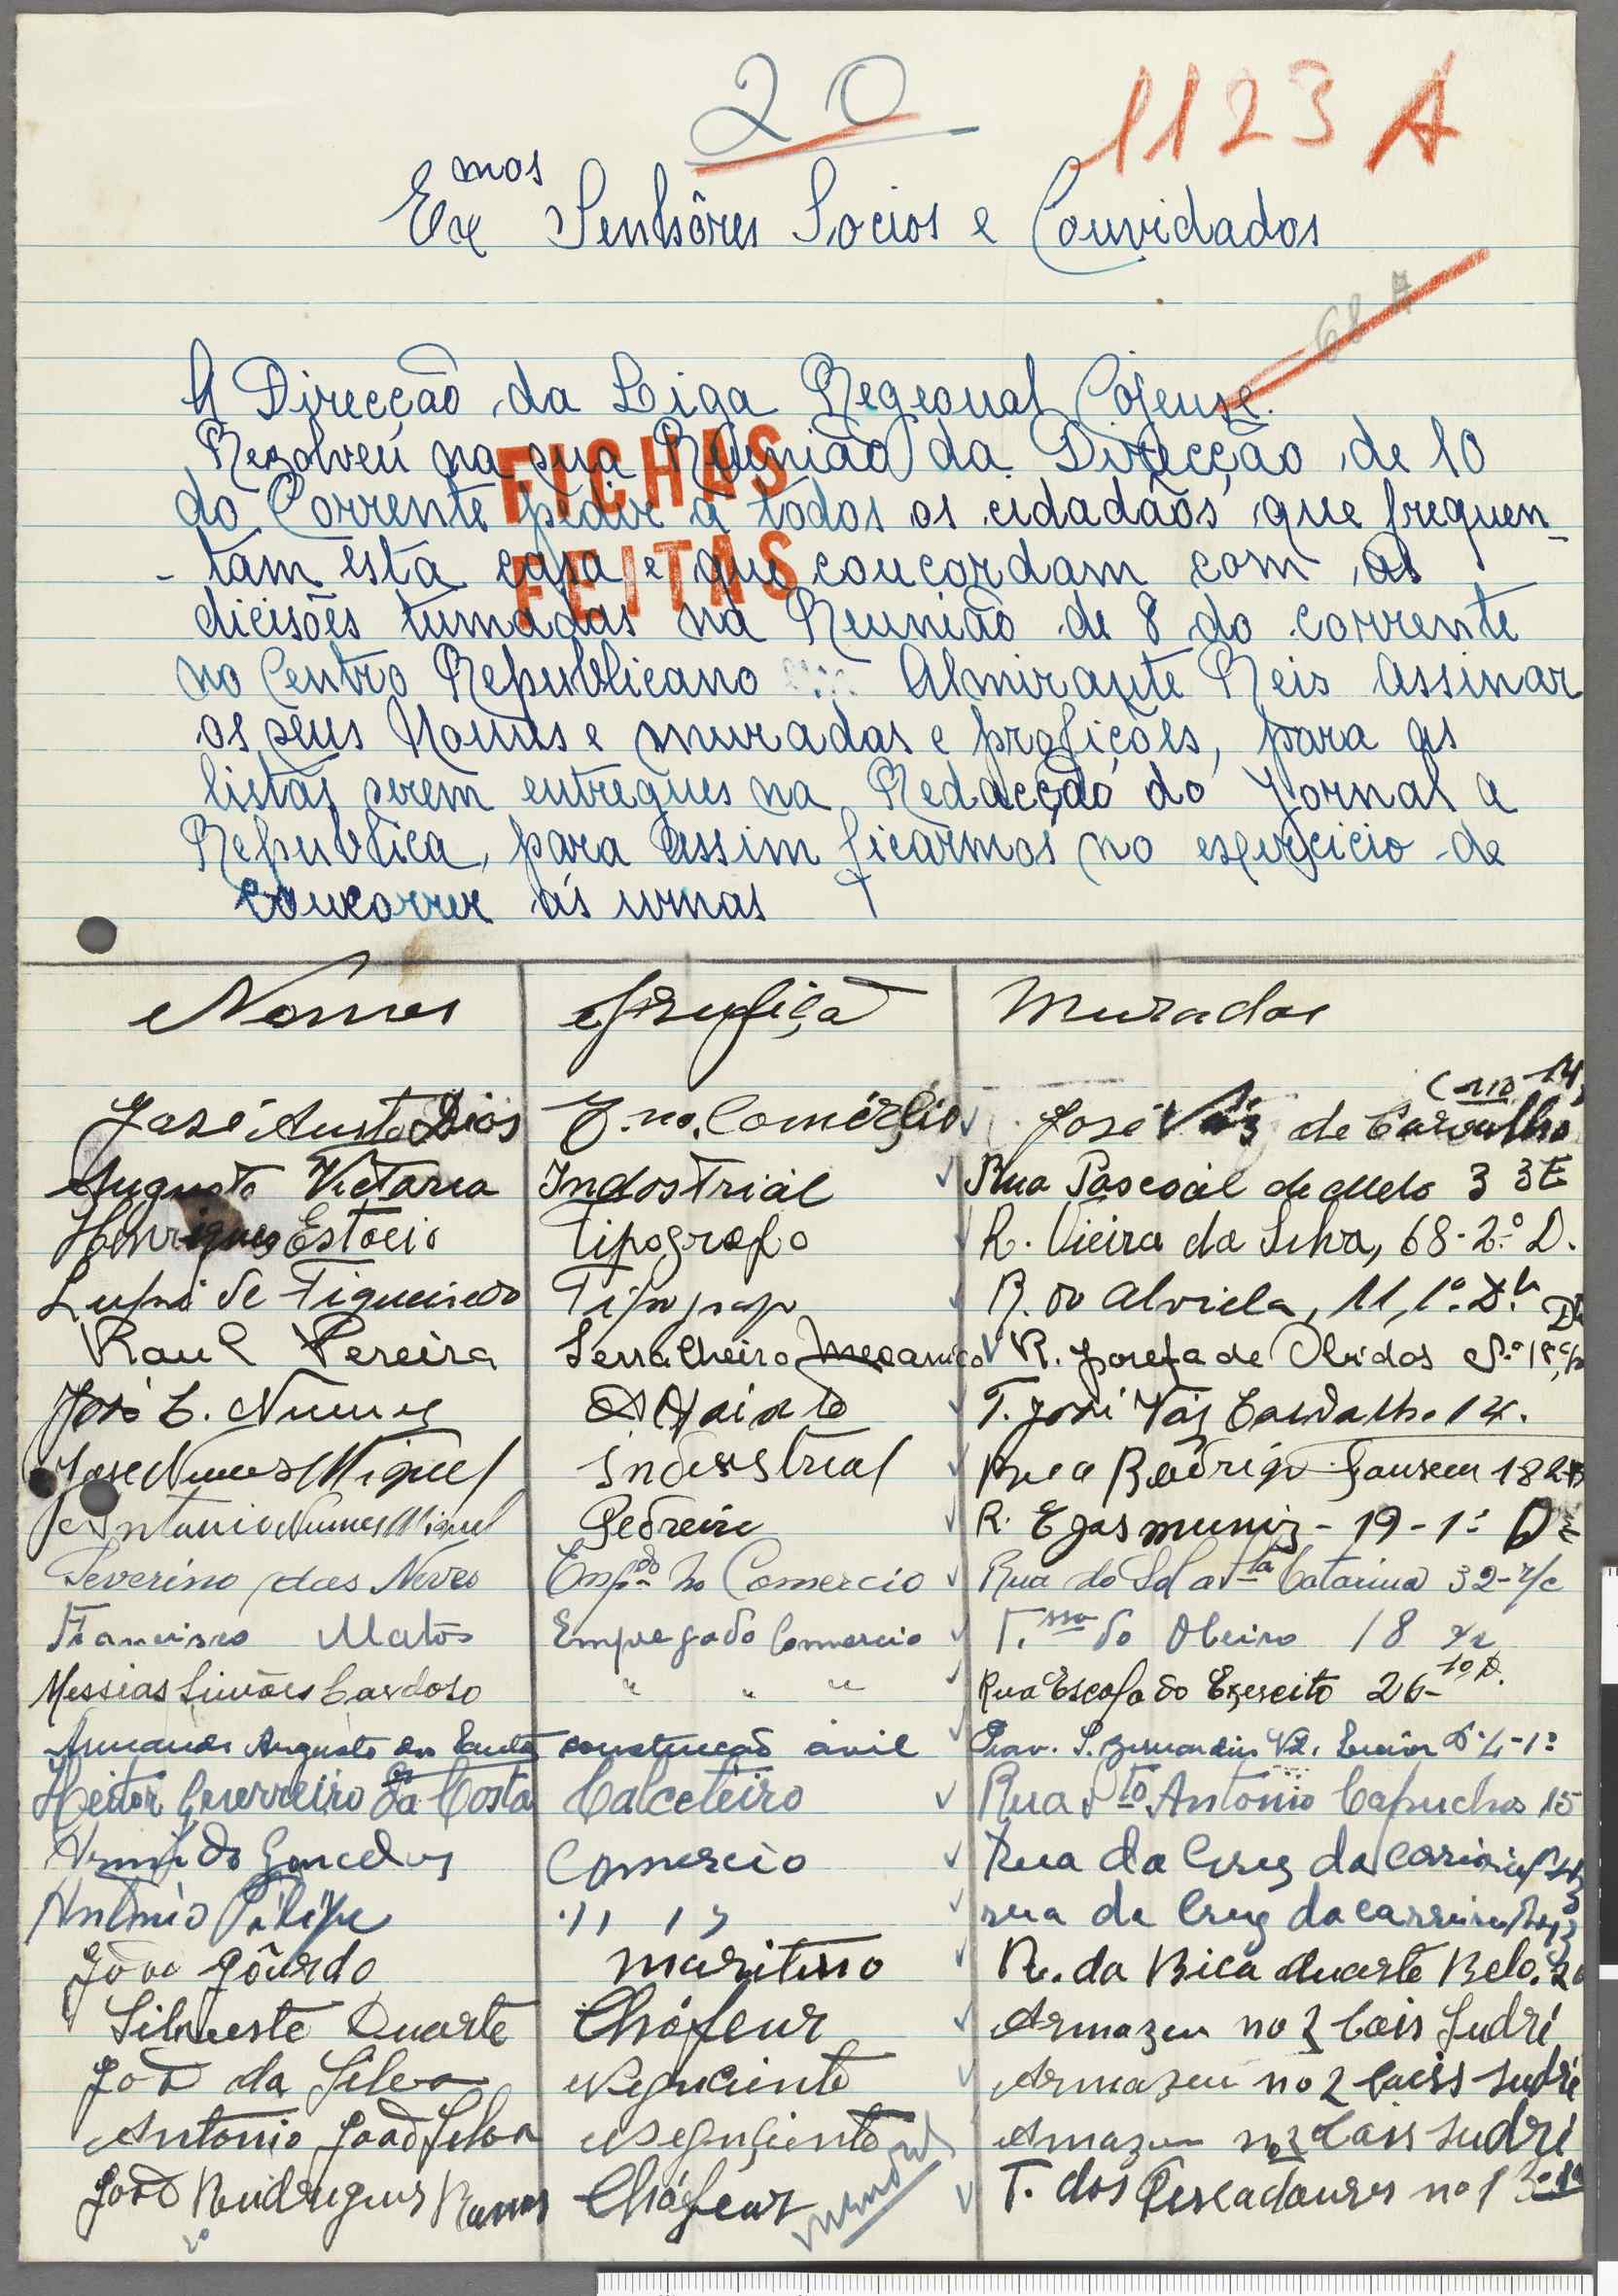 20
1123 A
Exmos Senhôres Socios e Convidados
68 A
A Direcção da Liga Regeonal Cojense.
Rezolveu na sua Reunião da Direcção de 10
do Corrente pedir a todos os cidadãos que frequen-
FICHAS
- tam esta casa e que concordam com as
FEITAS
dicisões tumadas na Reunião de 8 do corrente
no Centro Republicano Almirante Reis assinar
os seus Nomes e muradas e profições, para as
listas serem entregues na Redacção do Jornal a
Republica, para assim ficarmos no esercicio de
concorrer ás urnas
Nomes Prufiçã Muradas
José Dias E. no Comércio José Váz de Carvalho nº 14
Augusto Victoria Indostrial Rua Pascoal de Melo 3 3º E
Henriques Estacio Tipografo R. Vieira da Silva, 68-2.º D.
de Figueiredo Tipografo R. do Alviela, 11, 1.º Dto
Raul Pereira Serralheiro Mecanico R. Josefa de Obidos N.º 18
José L. Nunes Alfaiate T. José Váz Carvalho 14.
José Nunes Miguel industrial Rua Rodrigo 182
Antonio Nunes Miguel Pedreiro R. Egas muniz - 19 - 1º D
Severino das Neves Empdo no Comercio Rua do Sol a Sta Catarina 32-r/c
Francisco Matos Empregado Comercio T.ssa do Oleiro 18
Messias Simões Cardoso " " " Rua Escola do Exercito 26-1º D.
Armando Augusto dos Santos construcção civil Trav. S. Bernardino 1º
Heitor Guerreiro da Costa Calceteiro Rua Sto Antonio Capuchos 15
Gonçalves Comercio Rua da Cruz da Carreira
António Filipe " " rua da Cruz da carreira
João Gôurdo maritimo R. da Bica duarte Belo. 20
Silveste Duarte Cháfeur Armazem no 2 Cais Sudré
João da Silva Neguciente Armazem no 2 Caiss Sudré
Antonio João Silva Neguciente Amazem no 2 Cais Sudré
João Rudrigues Ramos Cháfeur T. dos Pescadoures no 13-1º